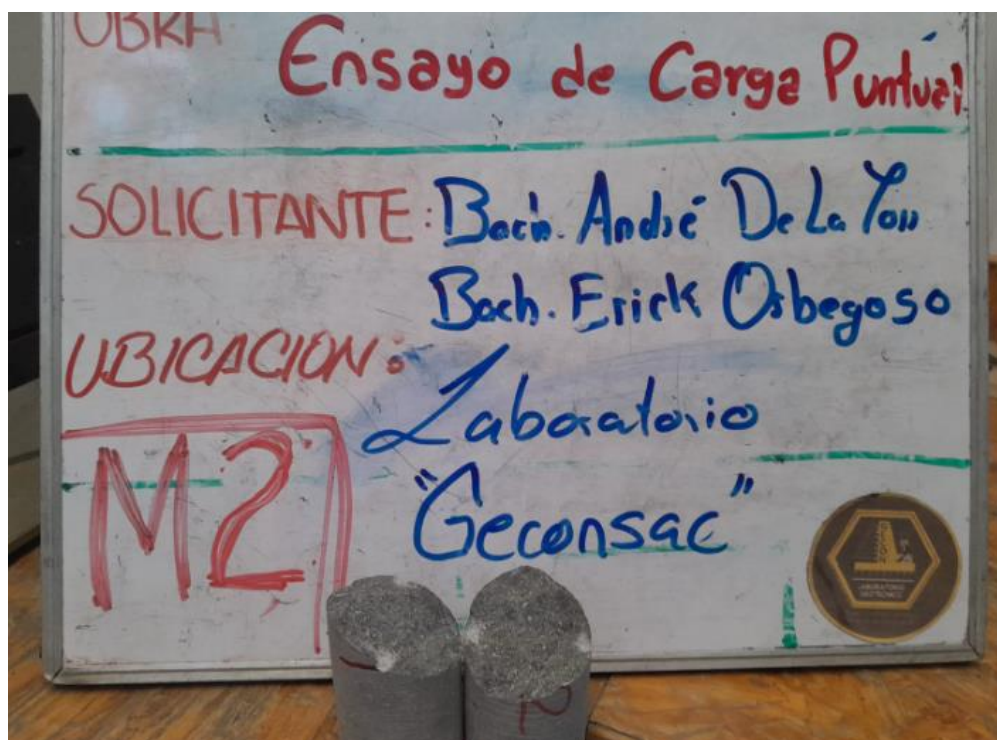 OBRA Ensayo de Carga Puntual
SOLICITANTE: Bach. André De La Torr
Bach. Erick Orbegoso
UBICACION: Laboratorio
M2 "Geconsac"
LABORATORIO
GEOTECNICO